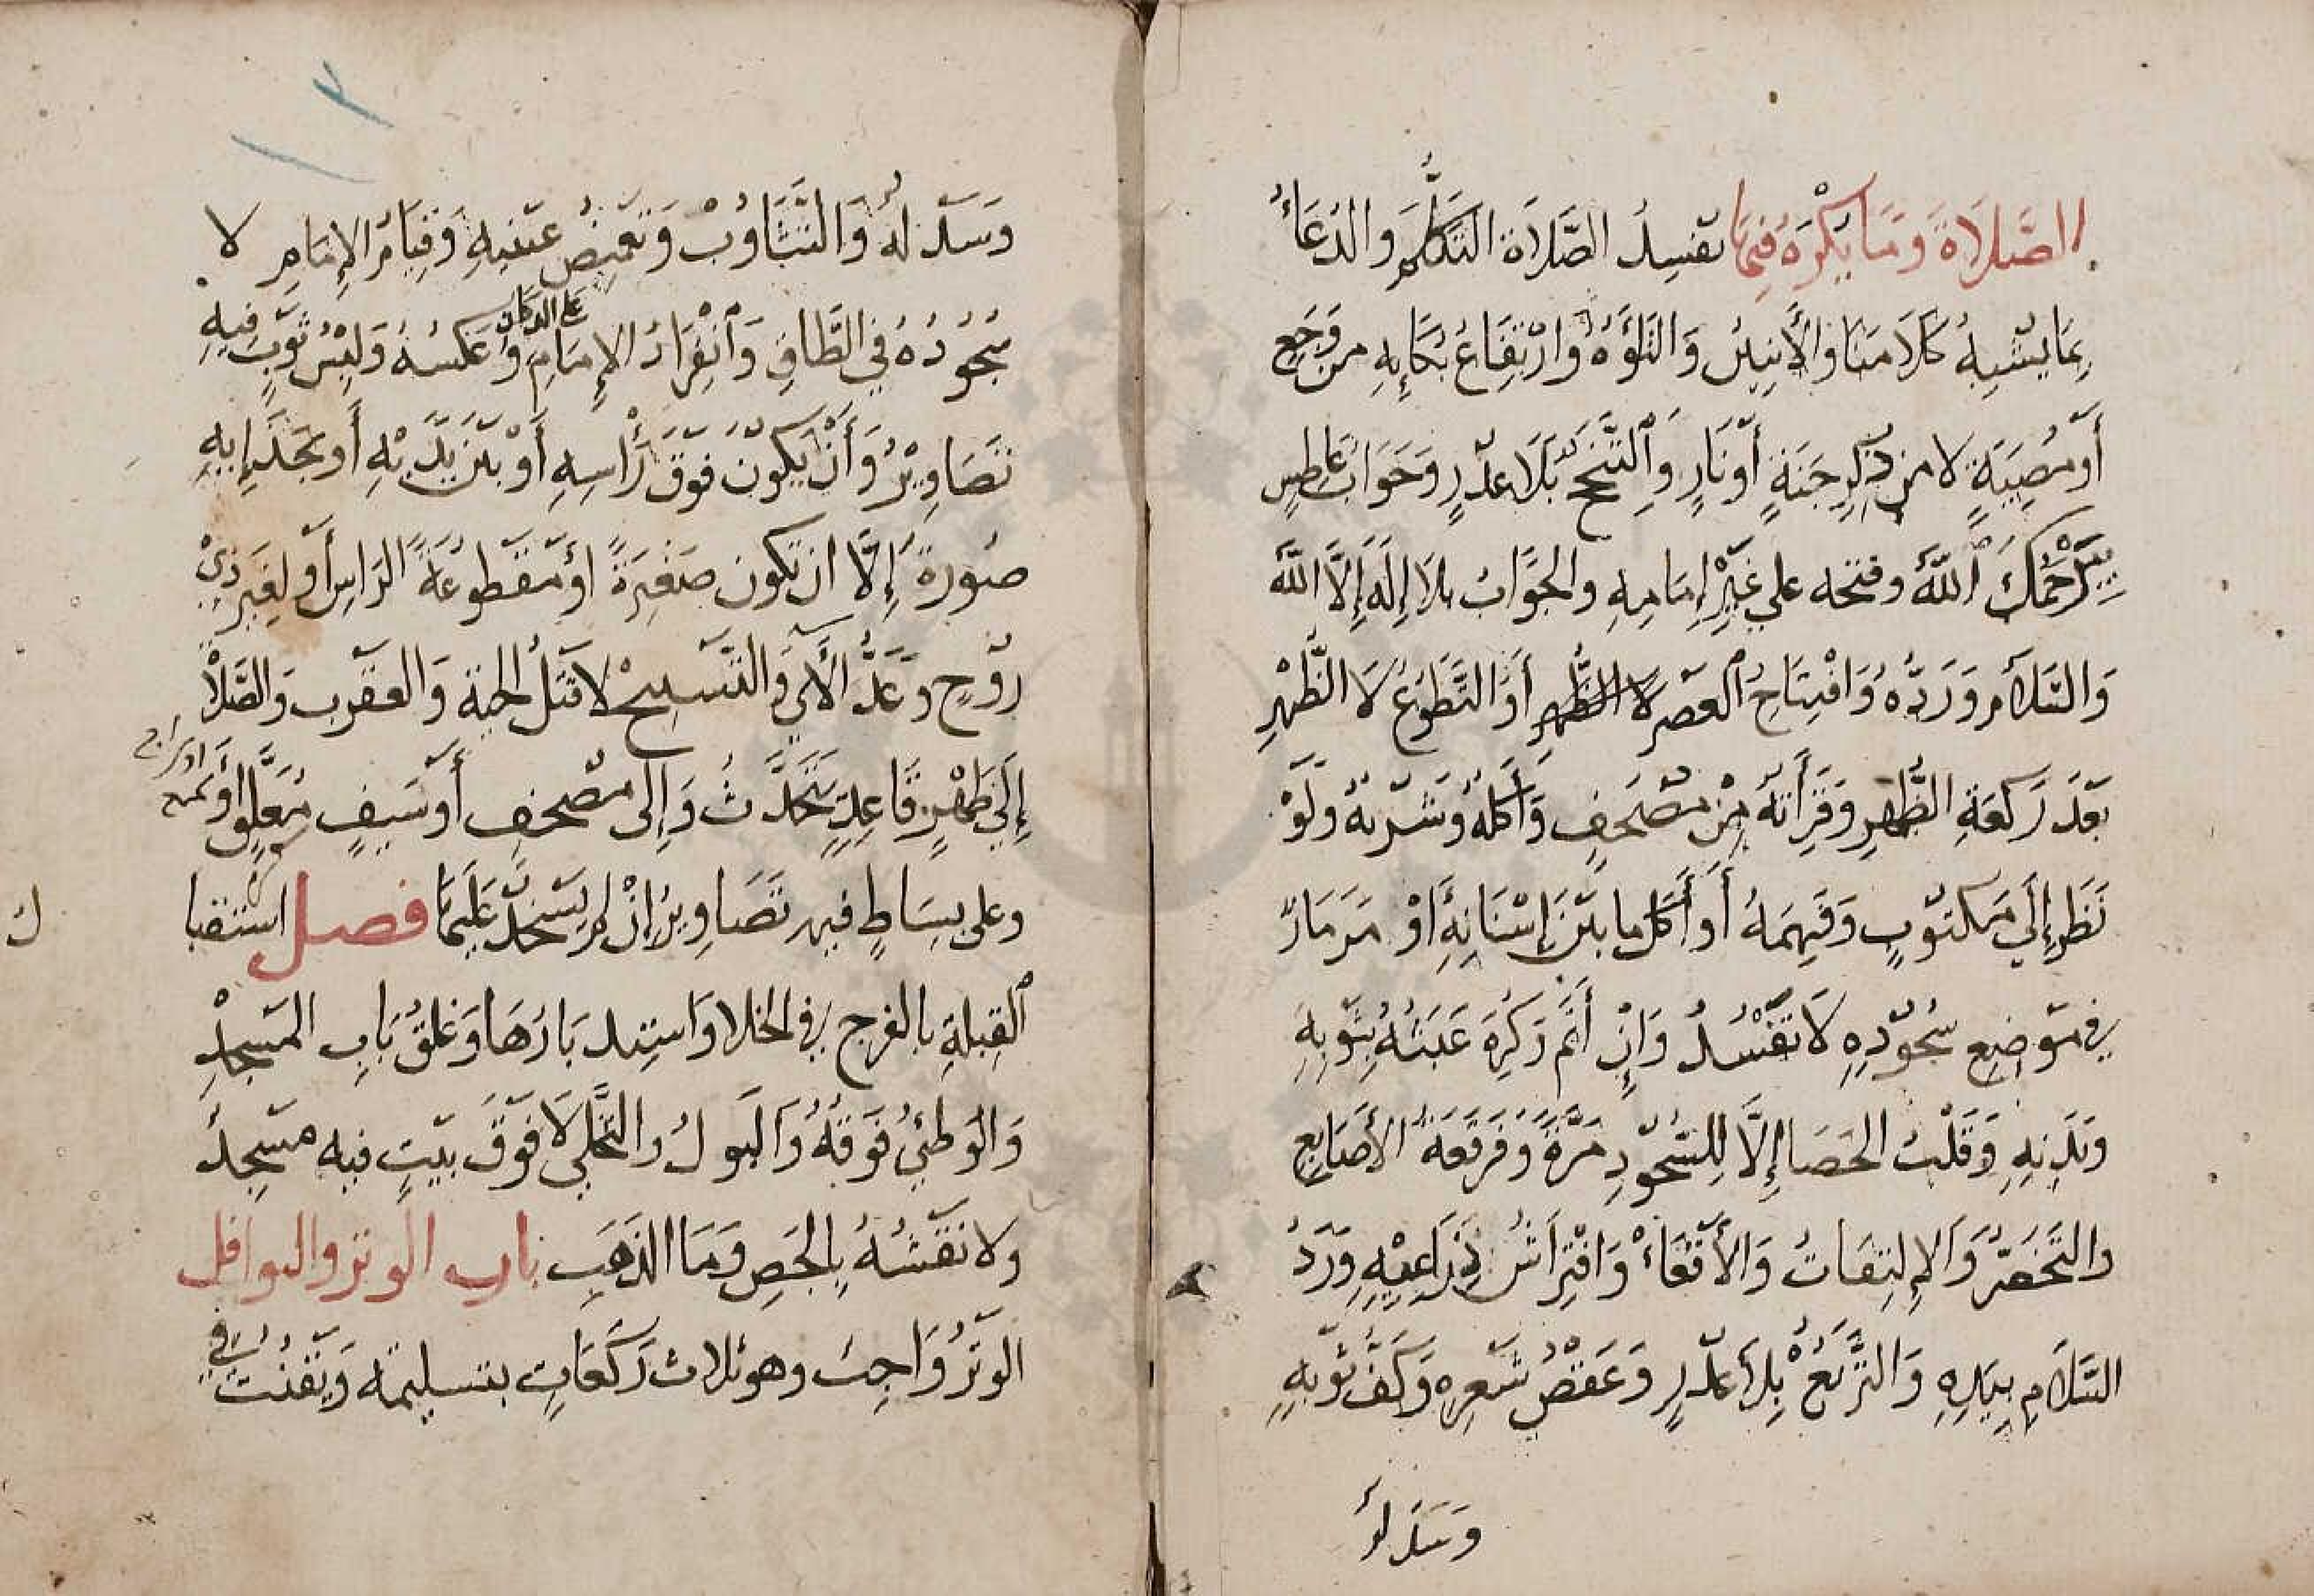 الصَّلَاةَ وَمَا يُكْرَهُ فِيهَا تفسِدُ الصَّلَاةَ التَكَلُّمَ وَالدُعَاءُ
بِمَا يشْبِهُ كَلَامَنَا وَالأَنِينُ وَالتَّأَوُّهُ وَارْتِفَاعُ بُكَايِهِ مِن وَجَعٍ
أَوْ مُصِيبَةٍ لا مِن ذِكرِ جَنَةٍ أَوْ نَارٍ وَالتَّنَحْنُحُ بِلَا عذْرٍ وَجَوَابُ عَاطِسٍ
بِيَرْحَمُكَ اللَّهُ وفتحه علي غَيْرِ إِمَامِهِ والجَوَابُ بلا إِلَهَ إِلَّا اللَّه
وَالسَّلَامُ وَرَدُّهُ وَافْتِتَاحُ العَصْرِ لا الظهرِ أَوْ التَّطَوُعُ لَا الظُّهْرِ
بَعْدَ رَكعَةِ الظُّهرِ وَقِرَأَتَهُ مِنْ مصْحَفٍ وَأَكلُهُ وَشُرْبُهُ وَلَوْ
نَظَرَ إِلَي مَكتوْبٍ وَفَهِمَهُ أَوْ أَكَلَ ما بَيْنَ إِسْنَانِهِ أَوْ مَرَ مَارٌ
في مَوْضِعِ سُجُوْدِهِ لَا تَفْسُدُ وَإِنْ أَثَمَ وَكُرِهَ عَبَثُهُ بِثَوْبِهِ
وَبَدَنِهِ وَقَلْبُ الحَصَا إِلَّا لِلسُّجُوْدِ مَرَّةً وَفَرقَعَةُ الأَصَابِعِ
وَالتَخَصُّرُ وَالإلتِفَاتُ وَالأَقْعَاءُ وَافْتِرَاشُ ذِرَاعَيْهِ وَرَدُّ
السَّلَامِ بِيَدِهِ وَالتَّرَبُّعُ بِلَا عُذْرٍ وَعَقْصُ شَعرِهِ وَكَفُّ ثَوْبِهِ
وَسَدْلُهُ
وَسَدْلهُ وَالتَّثَاوُبُ وَتَغْمِيضُ عَيْنيهِ وَقِيَامُ الإِمَامِ لا
سُجُوْدُهُ في الطَّاقِ وَانْفِرَادُ الإِمَامِ على الدكان وَعَكسُهُ وَلبْسُ ثَوْبٍ فِيهِ
تَصَاوِيْرُ وَأَنْ يَكُوْنَ فَوْقَ رَأْسِهِ أَوْ بَيْنَ يَدَيْهِ أَو بحَذَايِهِ
صُورَةٌ إِلَّا ان تكون صَغِيرَةً اوْ مَقْطُوعَةَ الرَاسِ أَوْ لِغَيرِ ذِيْ
رُوْحٍ وَعَدُّ الآيِ وَالتَّسْبِيحْ لا قتلُ الحية وَالعَقْرب وَالصَّلَاةُ
إِلَي ظَهْرٍ قَاعِدٍ يَتَحَدَّثُ وَإِلى مصْحَفٍ أَوْ سَيفٍ مُعَلَّقٍ أَوْ شمع
او سراج
وعلى بِسَاطٍ فيه تَصَاوِيرُ إِنْ لم يَسْجُدْ عَلَيهَا فصل استقبا
ل
القِبلَةِ بالفرج في الخلا وَاستِدبَارَهَا وَغلقُ بَابِ المَسْجِدِ
وَالوَطئُ فَوَقَهُ وَالبَولُ والتَّخَلِّي لَا فَوْقَ بَيْتٍ فِيهِ مَسْجِدٌ
وَلا نَقْشُهُ بِالجَصِ وَمَا الذَهَبِ باب الوتر والنوافل
الوَتْرُ وَاجِبٌ وهو ثلاث رَكعَاتٍ بتسليمة وَيَقْنُتُ في